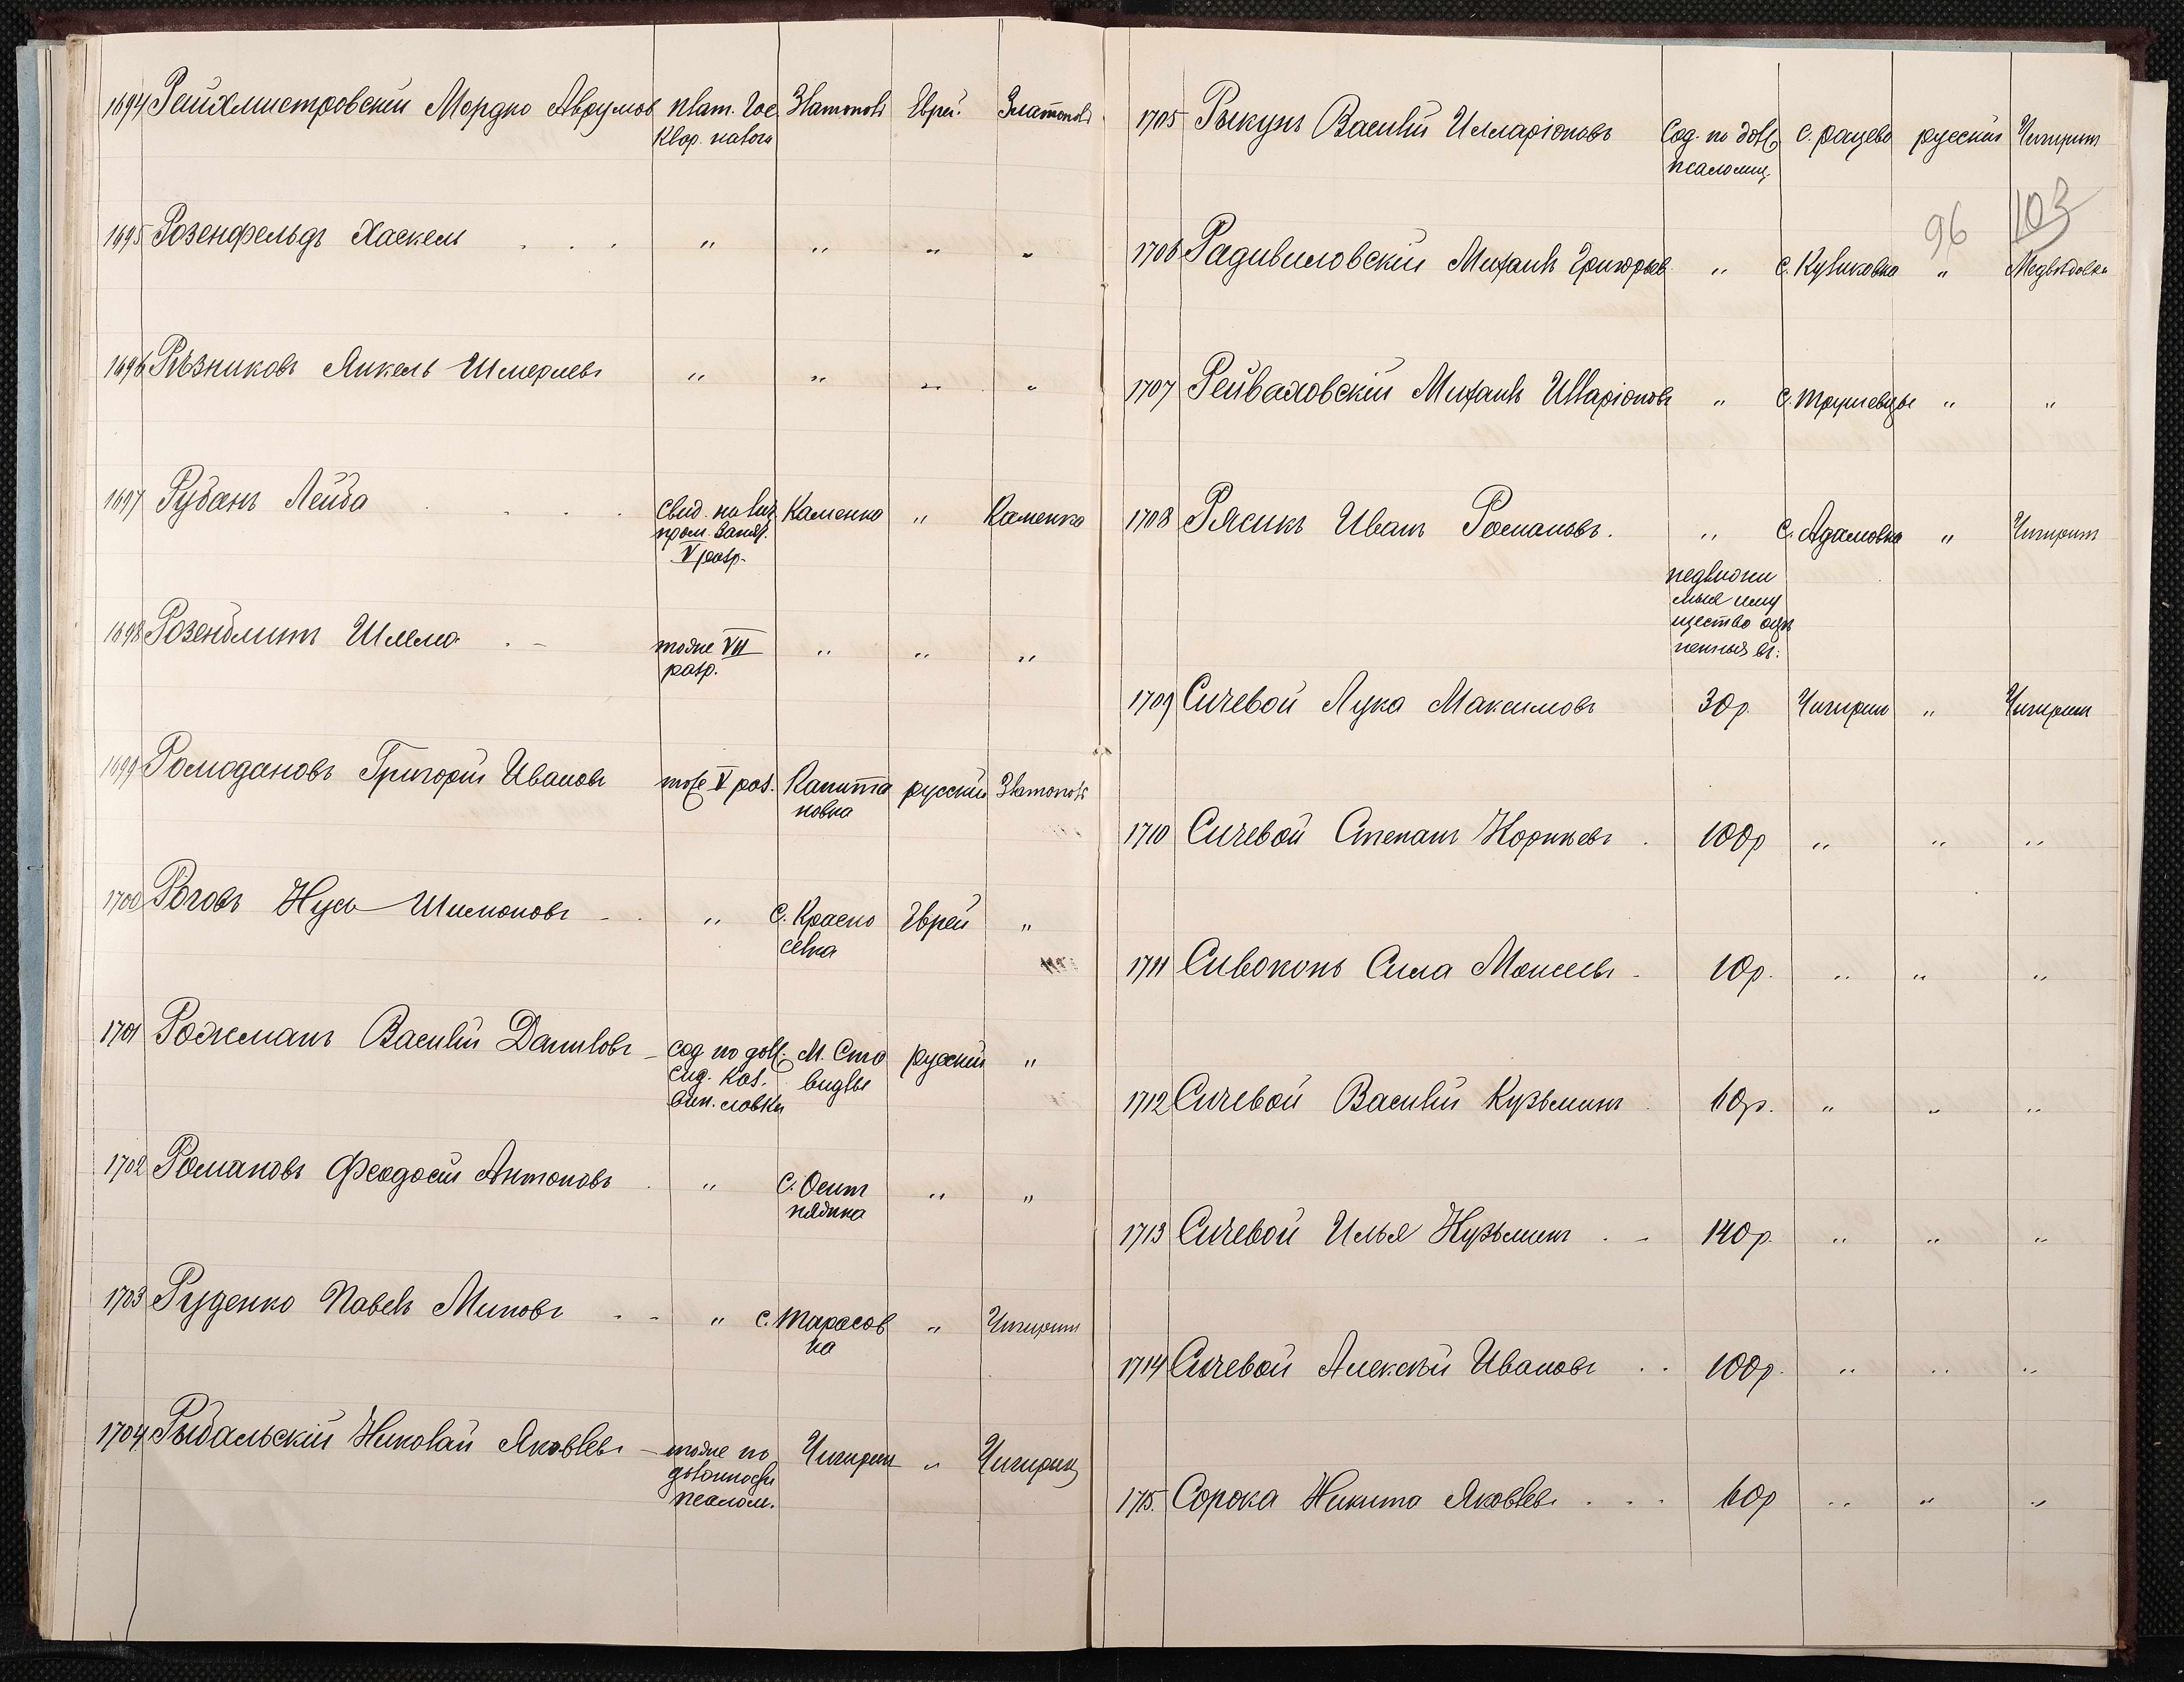 1694 Рейхмистровскій Мордко Аврумов плат. Гос. Златополь Еврей Златополь
квар. налога
1695 Розенфельдъ Хаскель . . . " " " "
1696 Рѣзниковъ Янкель Шмерлевъ " " " "
1697 Рубанъ Лейба . . . свид. на лич. Каменка " Каменка
пром. занят.
V разр.
1698 Розенблитъ Шлема . - тоже VII " " "
разр.
1699 Ромодановъ Григорій Ивановъ тоже V раз. Капита русскій Златополь
новка
1700 Роговъ Нусь Шимоновъ - . " С. Красно Еврей "
селка
1701 Рожманъ Василій Даниловъ - сод. по долж. М. Ста русскій "
сид. каз.
вин. лавки
1702 Романовъ Феодосій Антоновъ . " С. Осит " "
няжка
1703 Руденко Павелъ Миновъ . - " С. Тарасов " Чигирин
ка
1704 Рыбальскій Николай Яковлевъ - тоже по Чигирин " Чигирин
должности
псалом.
1705 Рыкунъ Василій Илларіоновъ Сод. по долж. С. Рацево русскій Чигирин
псаломщ.
96 103
1706 Радивиловскій Михаилъ Григорьев " С. Куликовка " Медвѣдовка
1707 Рейваховскій Михаилъ Илларіоновъ " С. Трушевцы " "
1708 Рясикъ Иванъ Романовъ. " С. Адамовка " Чигирин
недвижи
мыя иму
щество оцѣ
ненныя въ:
1709 Сичевой Лука Максимовъ 30 р. Чигирин " Чигирин
1710 Сичевой Степанъ Корнѣевъ . 100 р " " "
1711 Сивоконь Сила Моисеевъ - 10 р. " " "
1712 Сичевой Василій Кузьминъ " " "
1713 Сичевой Илья Кузьминъ . - 140 р. " " "
1714 Сичевой Алексѣй Ивановъ . . 100 р. " " "
1715. Сорока Никита Яковлевъ . . . " " "